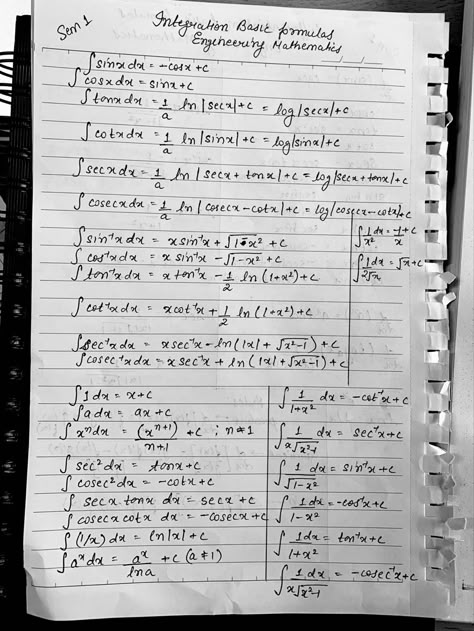 Sem 1
Integration Basic formulas
Engineering Mathematics
∫sinx dx = -cosx + c
∫cosx dx = sinx + c
∫tanx dx = 1/a ln |secx| + c = log|secx| + c
∫cotx dx = 1/a ln |sinx| + c = log|sinx| + c
∫secx dx = 1/a ln |secx + tanx| + c = log|secx + tanx| + c
∫cosecx dx = 1/a ln |cosecx - cotx| + c = log|cosecx - cotx| + c
∫sin⁻¹x dx = x sin⁻¹x + √1-x² + c
∫cos⁻¹x dx = x sin⁻¹x - √1-x² + c
∫tan⁻¹x dx = x tan⁻¹x - 1/2 ln (1+x²) + c
∫cot⁻¹x dx = x cot⁻¹x + 1/2 ln (1+x²) + c
∫sec⁻¹x dx = x sec⁻¹x - ln (|x| + √x²-1) + c
∫cosec⁻¹x dx = x sec⁻¹x + ln (|x| + √x²-1) + c
∫1/x² dx = -1/x + c
∫1/2√x dx = √x + c
∫1 dx = x + c
∫a dx = ax + c
∫xⁿ dx = (xⁿ⁺¹)/n+1 + c ; n ≠ 1
∫sec² dx = tanx + c
∫cosec² dx = -cotx + c
∫secx tanx dx = secx + c
∫cosecx cotx dx = -cosecx + c
∫(1/x) dx = ln|x| + c
∫aˣ dx = aˣ/lna + c (a ≠ 1)
∫1/1+x² dx = -cot⁻¹x + c
∫1/x√x²-1 dx = sec⁻¹x + c
∫1/√1-x² dx = sin⁻¹x + c
∫1/1-x² dx = -cos⁻¹x + c
∫1/1+x² dx = tan⁻¹x + c
∫1/x√x²-1 dx = -cosec⁻¹x + c